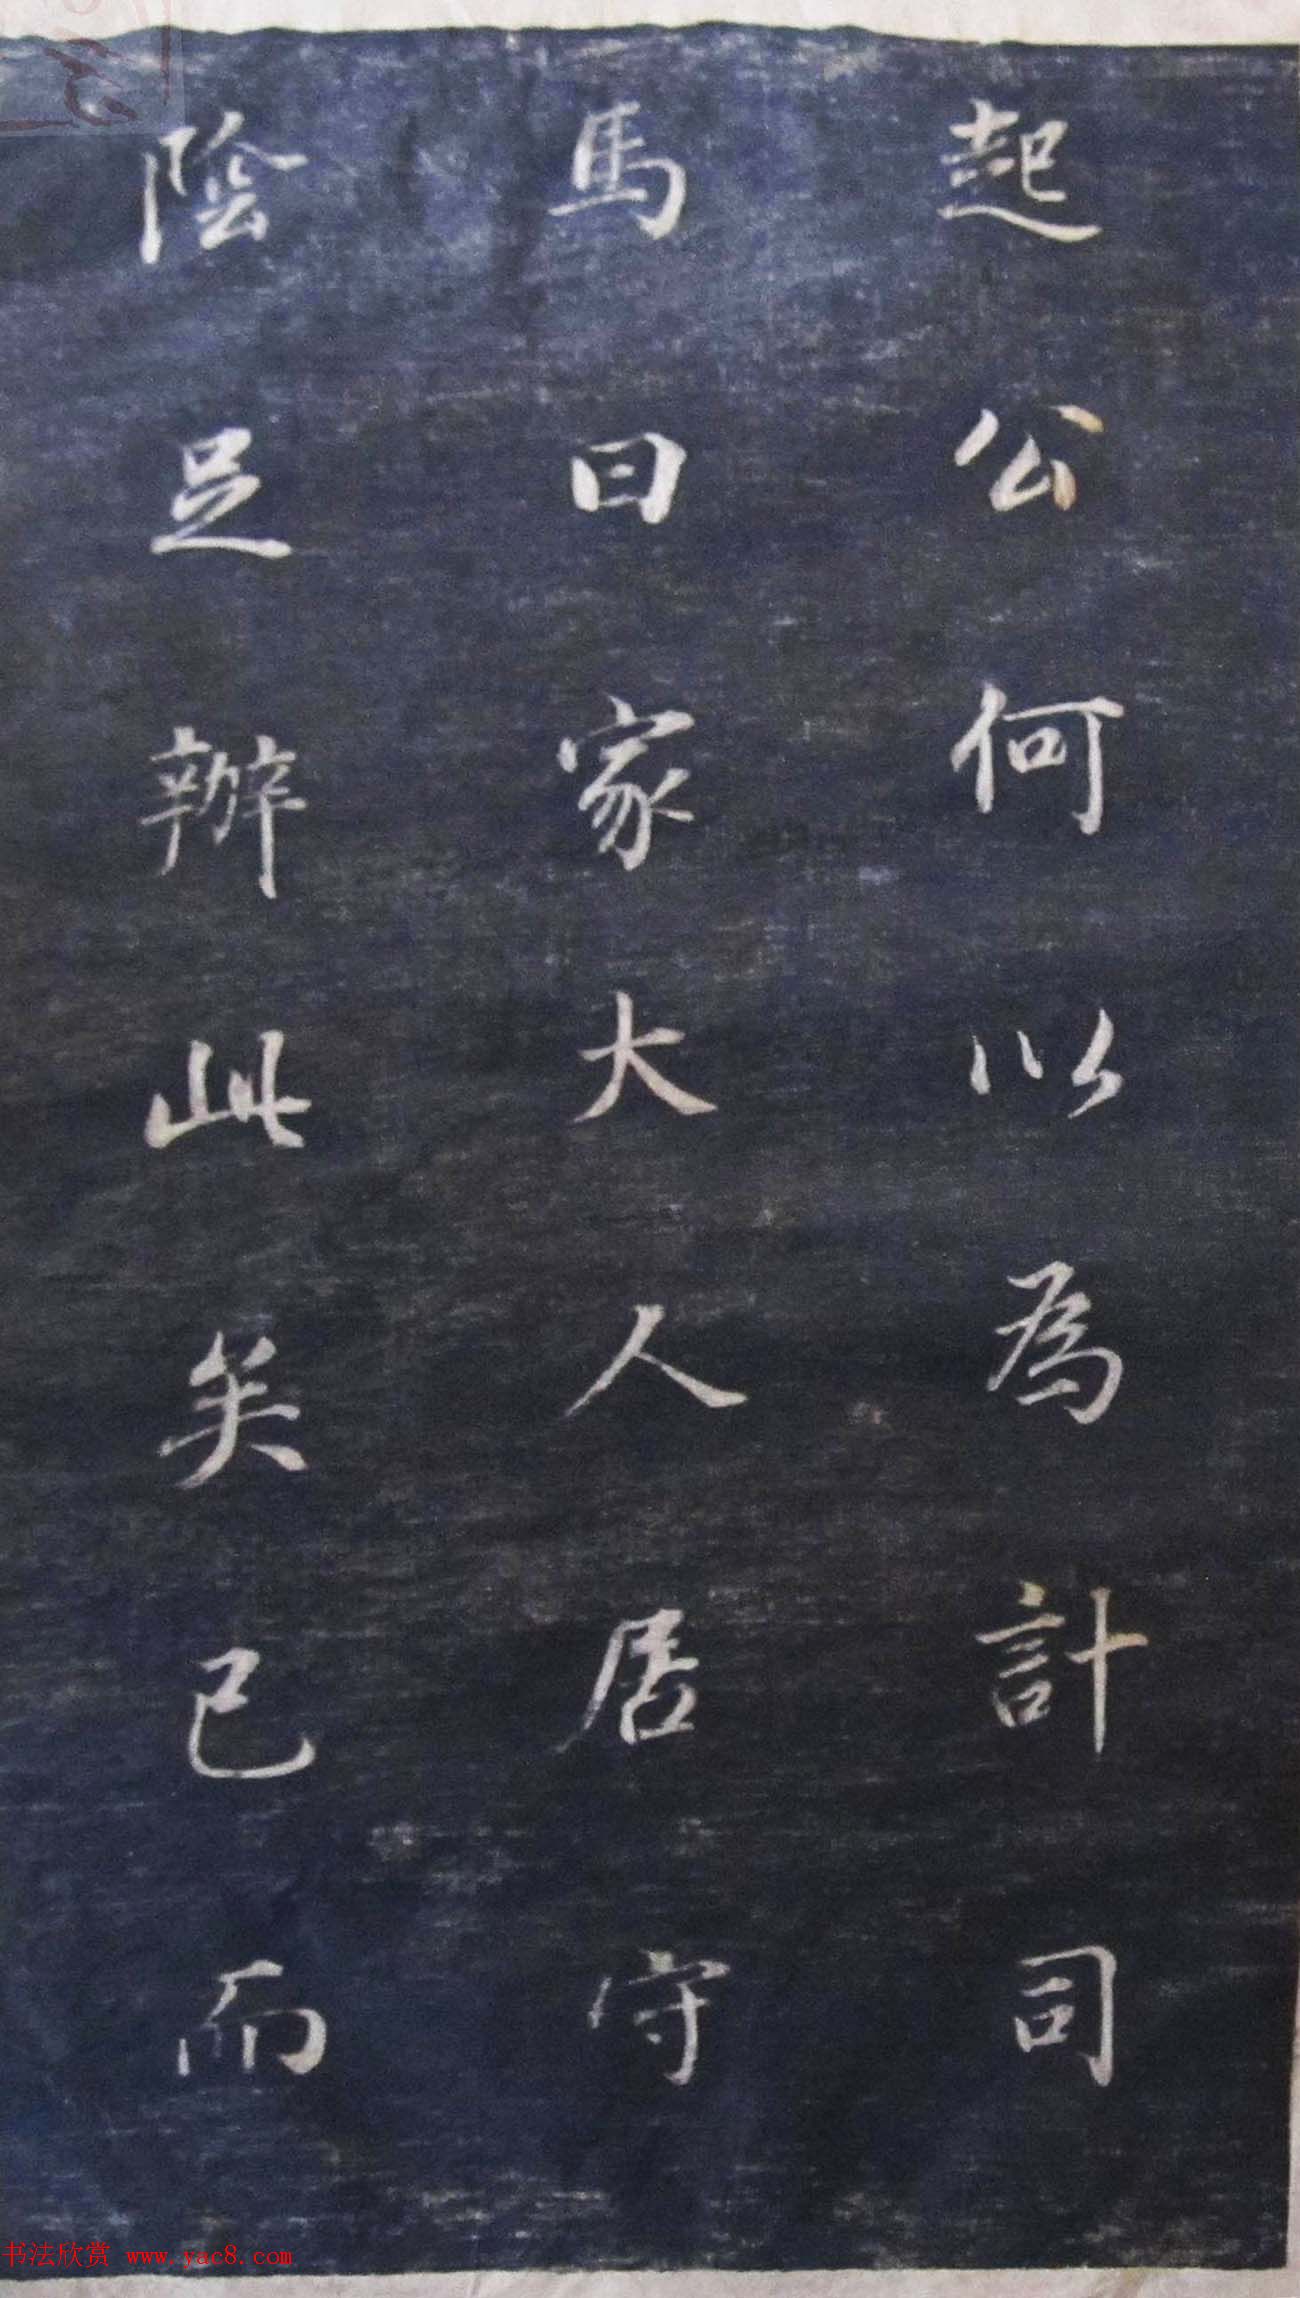 起公何以為計司
馬曰家大人居守
陰足辦此矣已而
书法欣赏 www.yac8.com